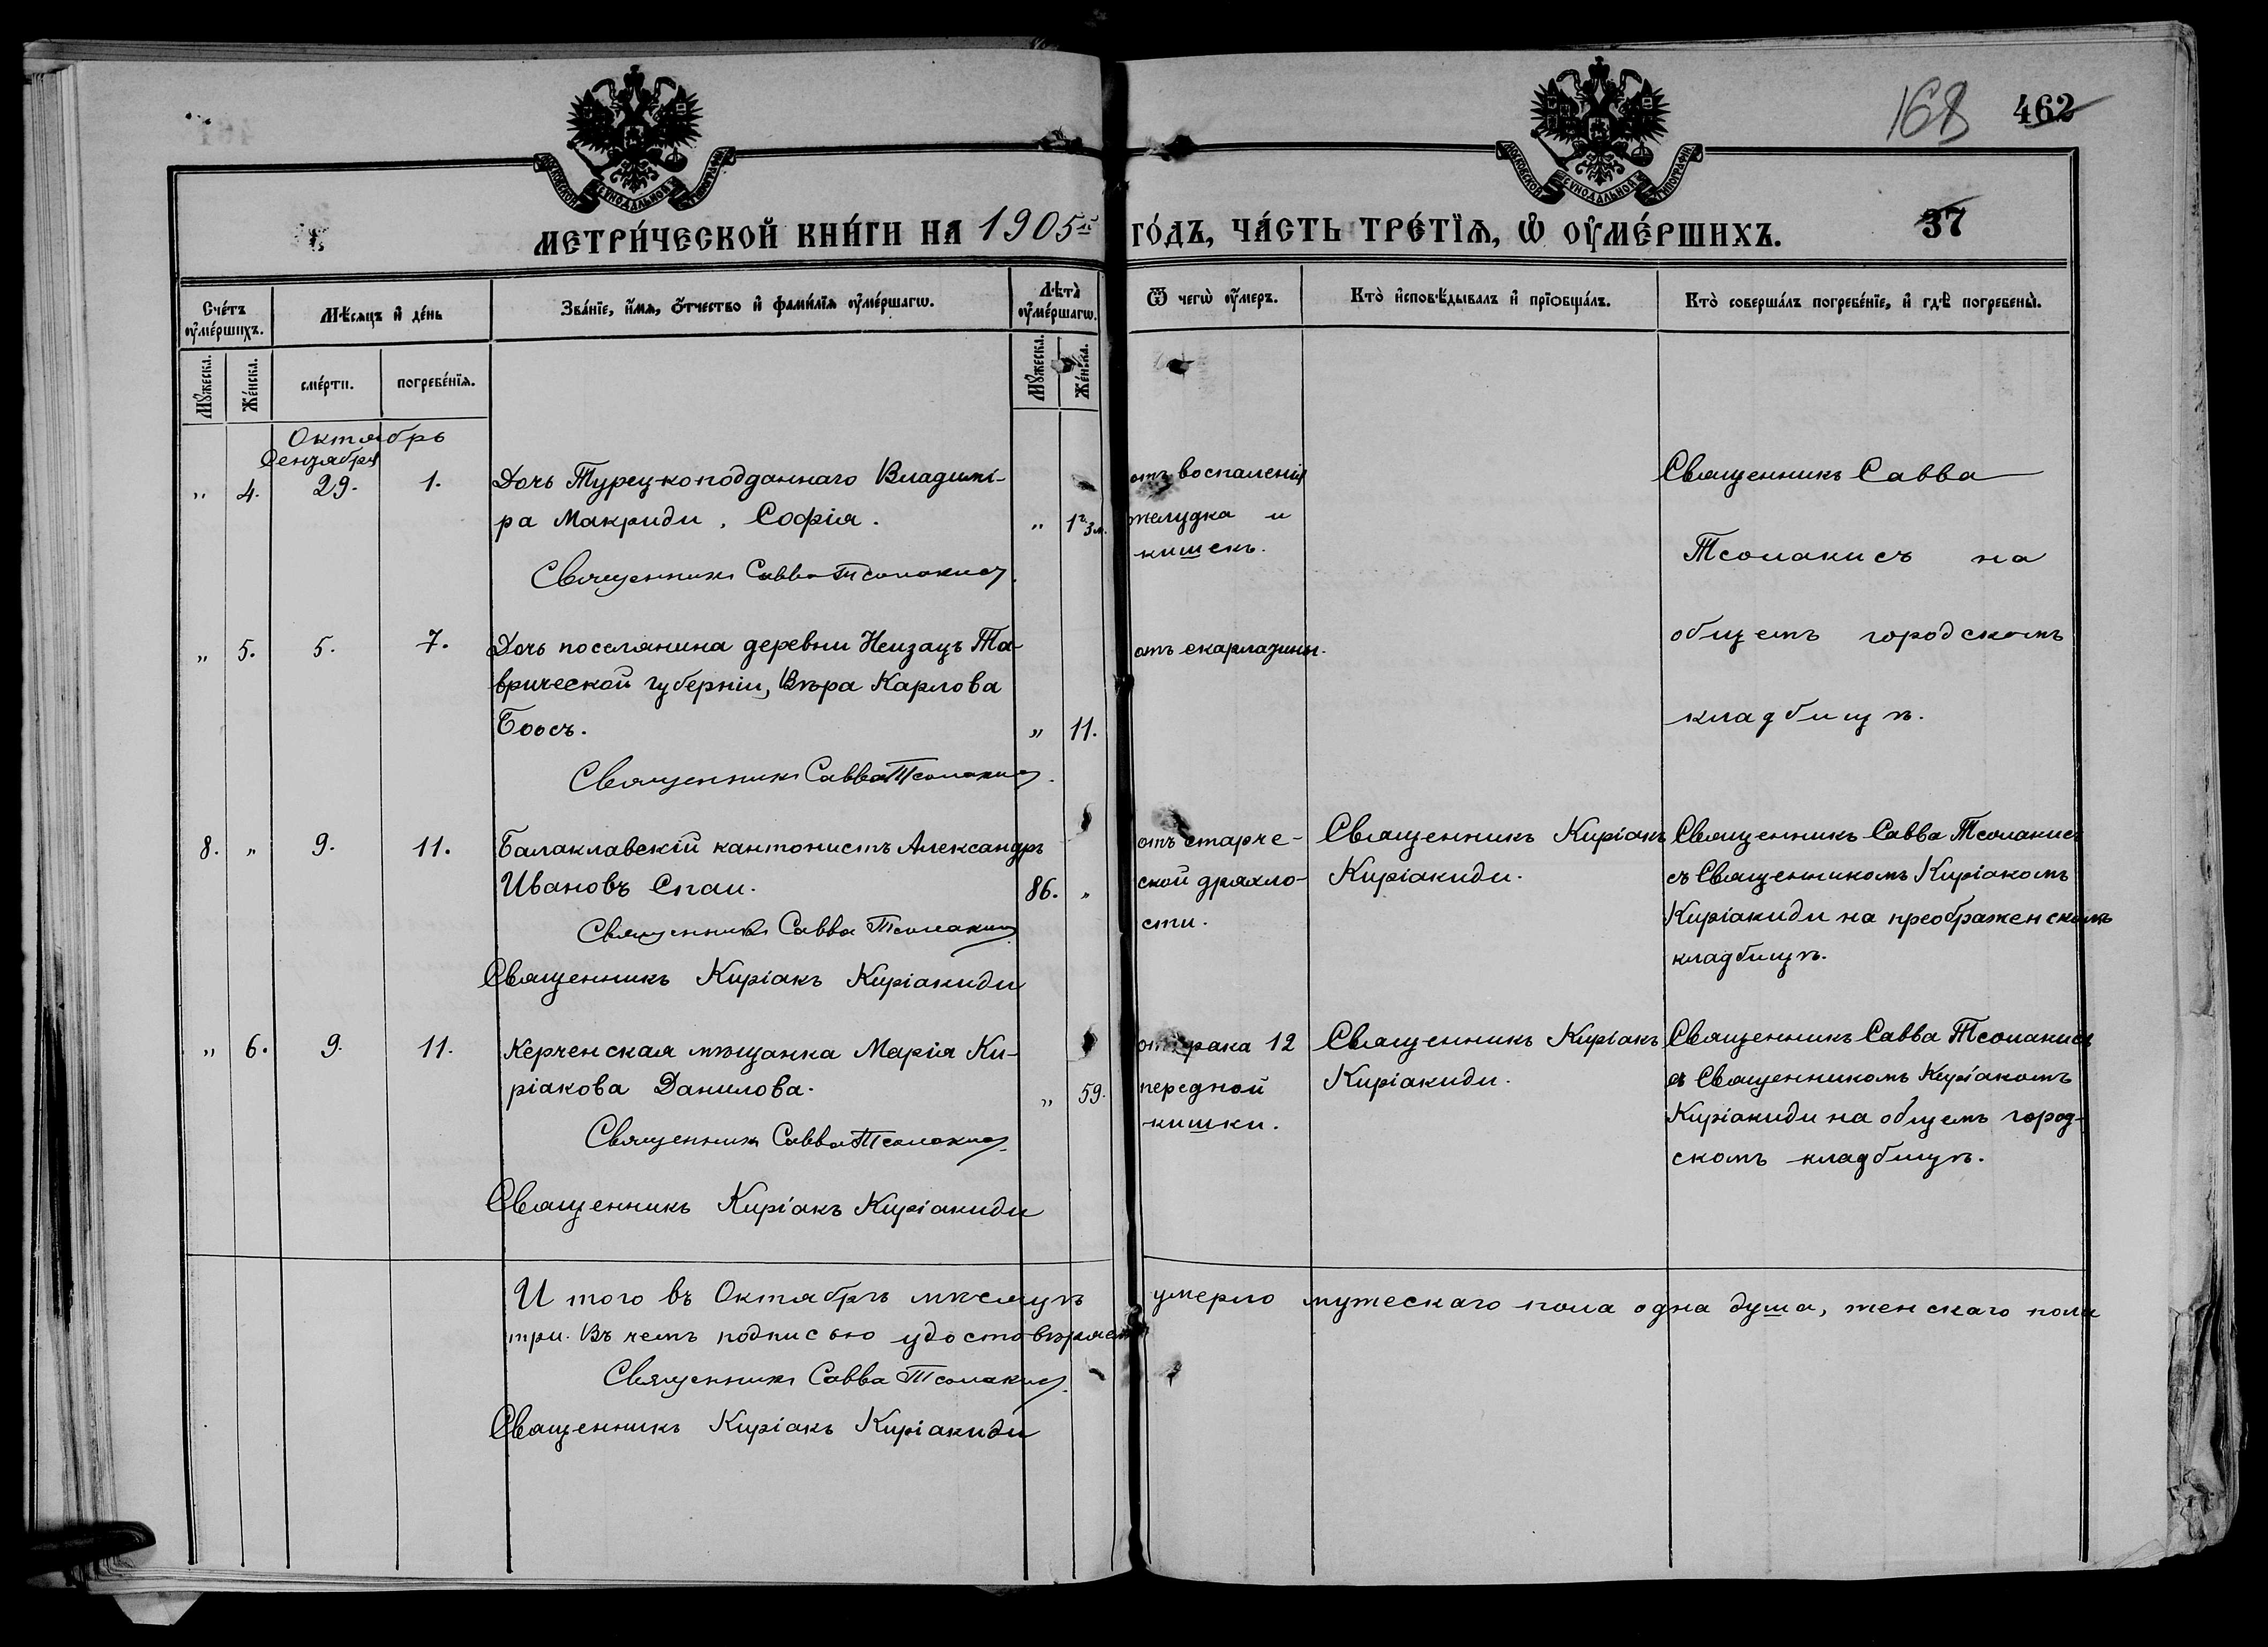 168 462
МОСКОВСКОЙ СѴНОДАЛЬНОЙ ТИПОГРАФІИ
МОСКОВСКОЙ СѴНОДАЛЬНОЙ ТИПОГРАФІИ
МЕТРИ́ЧЕСКОЙ КНИ́ГИ НА 1905й ГО́ДЪ, ЧА́СТЬ ТРЕ́ТЇѦ, Ѡ҆ ОУ҆МЕ́РШИХЪ. 37
Сче́тъ оу҆ме́ршихъ.
Мѣ́сѧцъ и҆ де́нь
Зва́нїе, и҆́мѧ, ѻ҆́тчество и҆ фами́лїѧ оу҆ме́ршагѡ.
Лѣта̀ оу҆ме́ршагѡ.
Ѿ чегѡ̀ оу҆́меръ.
Кто̀ и҆сповѣ́дывалъ и҆ прїѡбща́лъ.
Кто̀ соверша́лъ погребе́нїе, и҆ гдѣ̀ погребены̀.
Мꙋ́жеска. Же́нска. сме́рти. погребе́нїѧ. Мꙋ́жеска. Же́нска.
Октябрь
Сентября
„ 4. 29. 1. Дочь Турецкоподданнаго Владимі-
ра Макриди, Софія. „ 1г. 3м.
Священникъ Савва Тсолакисъ
отъ воспаленія
желудка и
кишекъ.
Священникъ Савва
Тсолакисъ на
общемъ городскомъ
кладбищѣ.
„ 5. 5. 7. Дочь поселянина деревни Нейзацъ Та-
врической губерніи, Вѣра Карлова
Боосъ. „ 11.
Священникъ Савва Тсолакисъ
отъ скарлатины.
8. „ 9. 11. Балаклавскій кантонистъ Александръ
Ивановъ Спаи. 86. „
Священникъ Савва Тсолакисъ
Священникъ Киріакъ Киріакиди
отъ старче-
ской дряхло-
сти.
Священникъ Киріакъ
Киріакиди.
Священникъ Савва Тсолакисъ
съ Священникомъ Киріакомъ
Киріакиди на преображенскомъ
кладбищѣ.
„ 6. 9. 11. Керченская мѣщанка Марія Ки-
ріакова Данилова. „ 59.
Священникъ Савва Тсолакисъ
Священникъ Киріакъ Киріакиди
отъ рака 12
передной
кишки.
Священникъ Киріакъ
Киріакиди.
Священникъ Савва Тсолакисъ
съ Священникомъ Киріакомъ
Киріакиди на общемъ город-
скомъ кладбищѣ.
И того въ Октябрѣ мѣсяцѣ умерло мужескаго пола одна душа, женскаго пола
три. Въ чемъ подписью удостовѣряемъ
Священникъ Савва Тсолакисъ
Священникъ Киріакъ Киріакиди